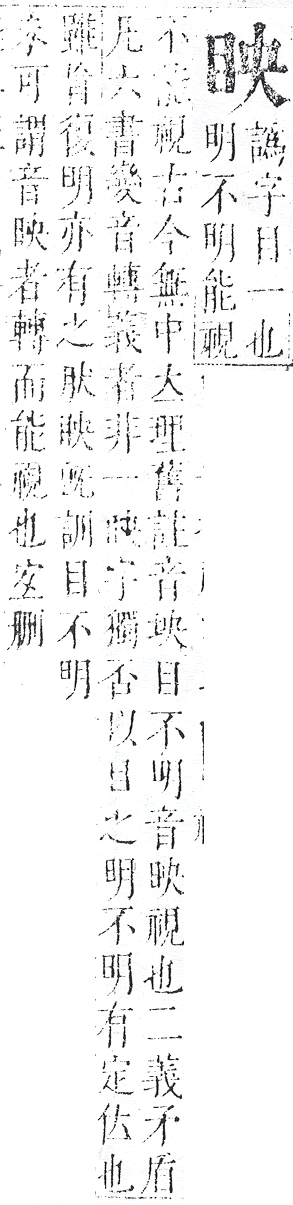 眏
譌字目一也
明不明能視
不能視古今無中大理舊註音坱目不明音映視也二義矛盾
凡六書變音轉義者非一眏字獨否以目之明不明有定体也
雖盲復明亦有之肰眏旣訓目不明
可謂音映者轉而能視也宐刪